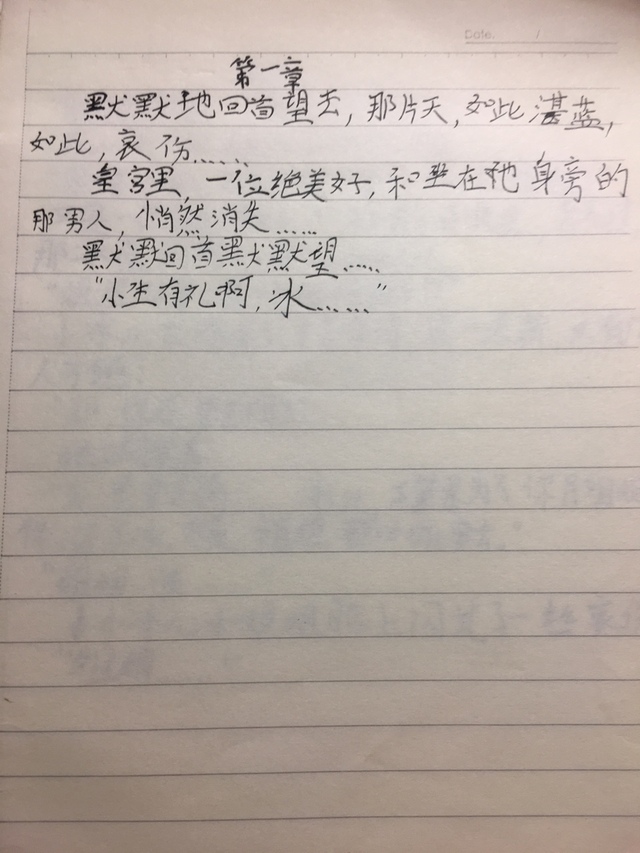 Date. /
第一章
默默地回首望去，那片天，如此湛蓝，
如此，哀伤……
皇宫里，一位绝美好，和坐在他身旁的
那男人，悄然消失……
默默回首默默望……
“小生有礼啊，冰……”